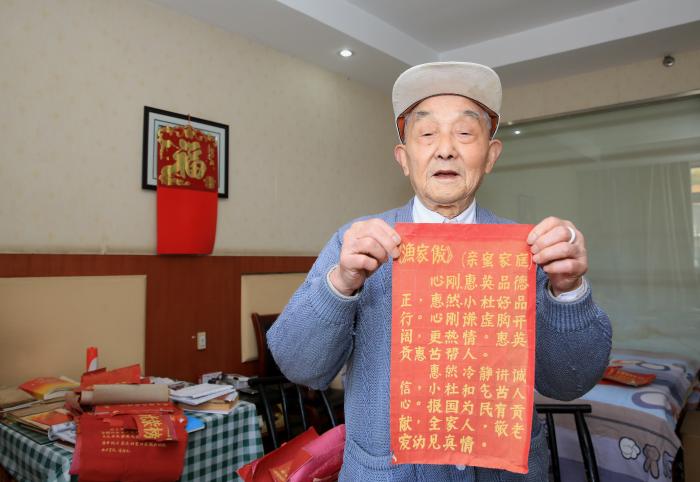 《漁家傲》(亲蜜家庭)
心刚惠英品德
正，惠然小杜好品
行。心刚谦虚胸开
阔，更热情。惠英
贡惠苦帮人。
惠然冷静讲诚
信。小杜和乞古人
心，报国为民有贡
献，全家人，敬老
爱幼见真情
福